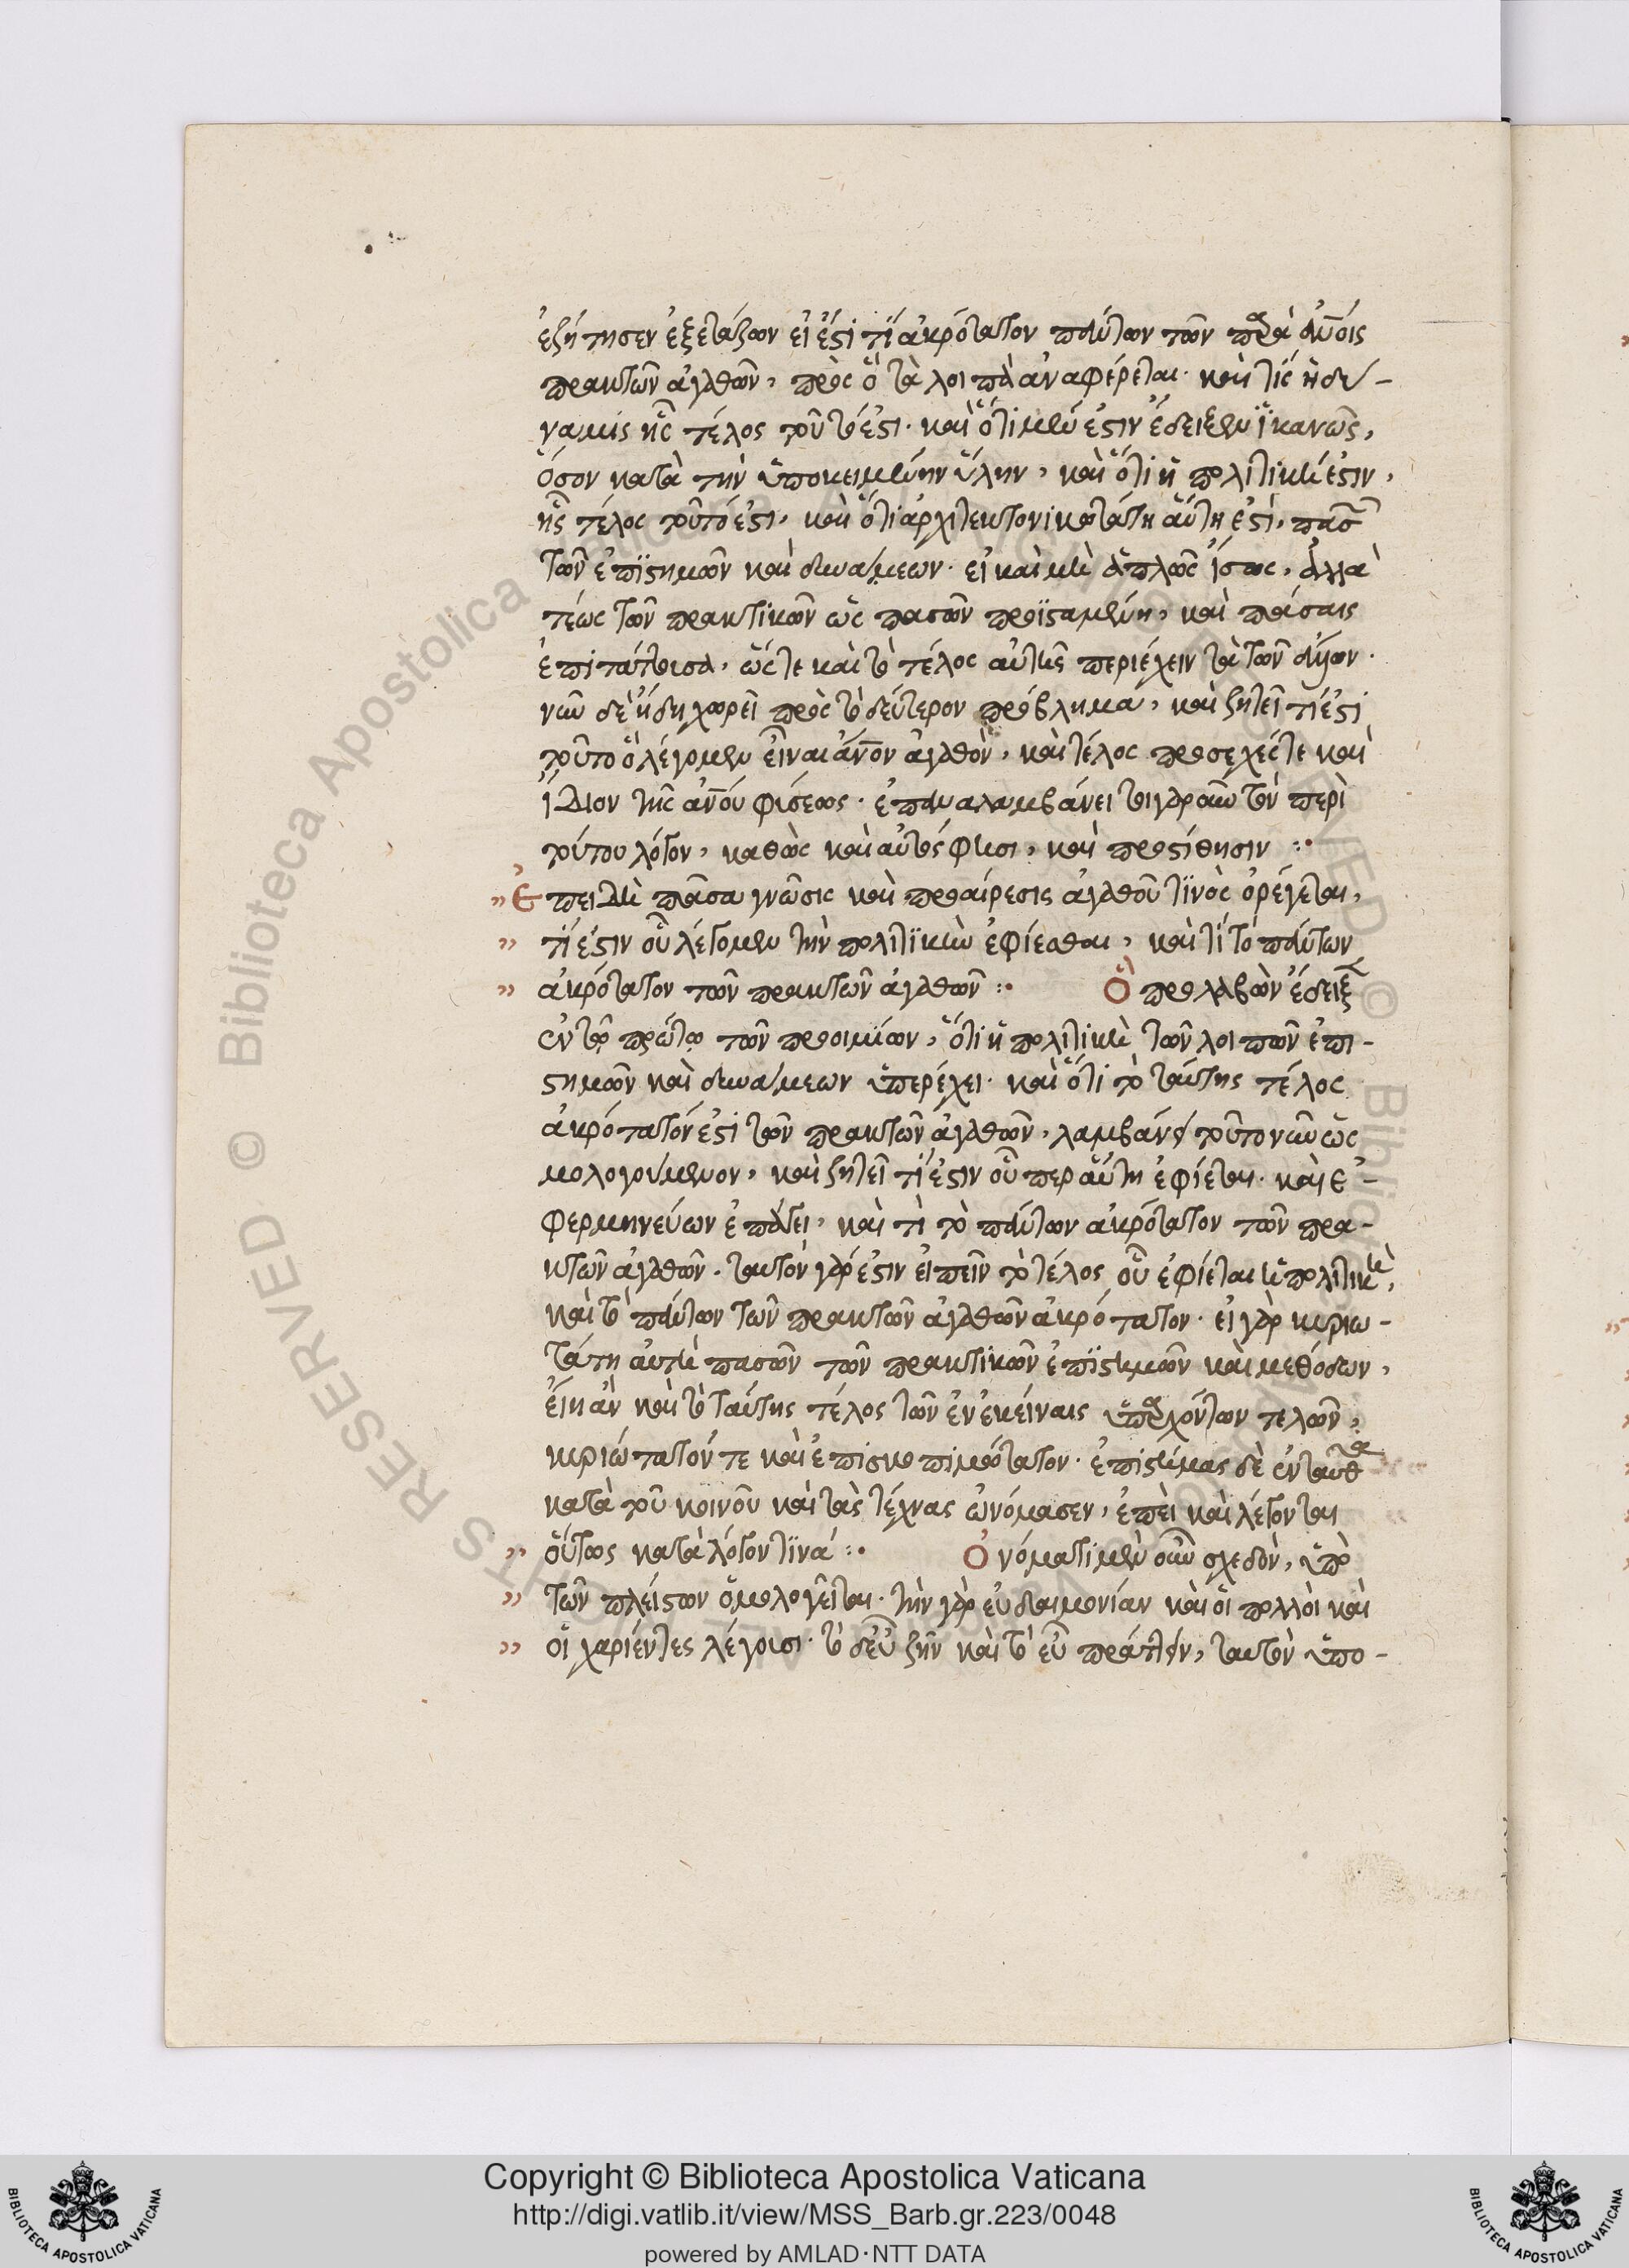 ἐζήτησεν ἐξετάζων εἰ ἔστί τι ἀκρότατον πάντων τῶν παρὰ ἀνοις
πρακτῶν ἀγαθῶν, πρὸς ὃ τὰ λοιπὰ ἀναφέρεται· καὶ τίς ἡ δύ-
ναμις ἧς τέλος τοῦτό ἐστι· καὶ ὅτι μὲν ἔστιν ἔδειξεν ἱκανῶς,
ὅσον κατὰ τὴν ὑποκειμένην ὕλην, καὶ ὅτι ἡ πολιτική ἐστιν,
ἧς τέλος τοῦτό ἐστι, καὶ ὅτι ἀρχιτεκτονικωτάτη αὕτη ἐστὶ, πασ
τῶν ἐπιστημῶν καὶ δυνάμεων· εἰ καὶ μὴ ἁπλῶς ἴσως, ἀλλὰ
τέως τῶν πρακτικῶν ὡς πασῶν προϊσταμένη, καὶ πάσαις
ἐπιτάττουσα, ὥστε καὶ τὸ τέλος αὐτῆς περιέχειν τὰ τῶν ἄλλων·
νῦν δὲ ἤδη χωρεῖ πρὸς τὸ δεύτερον πρόβλημα, καὶ ζητεῖ τί ἐστι
τοῦτο ὃ λέγομεν εἶναι ἀνον ἀγαθὸν, καὶ τέλος προσεχές τε καὶ
ἴδιον τῆς ἀνου φύσεως· ἐπαναλαμβάνει τοιγαροῦν τὸν περὶ
τούτου λόγον, καθὼς καὶ αὐτός φησι, καὶ προστίθησιν :·
" Ἐπειδὴ πᾶσα γνῶσις καὶ προαίρεσις ἀγαθοῦ τινὸς ὀρέγεται,
" τί ἐστιν οὗ λέγομεν τὴν πολιτικὴν ἐφίεσθαι, καὶ τί τὸ πάντων
" ἀκρότατον τῶν πρακτῶν ἀγαθῶν :· Ὃ προλαβὼν ἔδειξ
ἐν τῷ πρώτῳ τῶν προοιμίων, ὅτι ἡ πολιτικὴ τῶν λοιπῶν ἐπι-
στημῶν καὶ δυνάμεων ὑπερέχει· καὶ ὅτι τὸ ταύτης τέλος
ἀκρότατόν ἐστι τῶν πρακτῶν ἀγαθῶν, λαμβάνει τοῦτο νῦν ὡς
μολογούμενον, καὶ ζητεῖ τί ἐστιν οὗπερ αὕτη ἐφίεται· καὶ ἐ-
φερμηνεύων ἐπάγει, καὶ τί τὸ πάντων ἀκρότατον τῶν πρα-
κτῶν ἀγαθῶν· ταυτὸν γάρ ἐστιν εἰπεῖν τὸ τέλος οὗ ἐφίεται ἡ πολιτικὴ,
καὶ τὸ πάντων τῶν πρακτῶν ἀγαθῶν ἀκρότατον· εἰ γὰρ κυριω-
τάτη αὐτὴ πασῶν τῶν πρακτικῶν ἐπιστημῶν καὶ μεθόδων,
εἴη ἂν καὶ τὸ ταύτης τέλος τῶν ἐν ἐκείναις ὑπαρχόντων τελῶν,
κυριώτατόν τε καὶ ἐπισκοπιμώτατον· ἐπιστήμας δὲ ἐνταῦθα
κατὰ τοῦ κοινοῦ καὶ τὰς τέχνας ὠνόμασεν, ἐπεὶ καὶ λέγονται
" οὕτως κατὰ λόγον τινά :· Ὀνόματι μὲν οὖν σχεδὸν, ὑπὸ
" τῶν πλείστων ὁμολογεῖται· τὴν γὰρ εὐδαιμονίαν καὶ οἱ πολλοὶ καὶ
" οἱ χαρίεντες λέγουσι· τὸ δ' εὖ ζῆν καὶ τὸ εὖ πράττειν, ταυτὸν ὑπο-
Copyright © Biblioteca Apostolica Vaticana
http://digi.vatlib.it/view/MSS_Barb.gr.223/0048
powered by AMLAD·NTT DATA